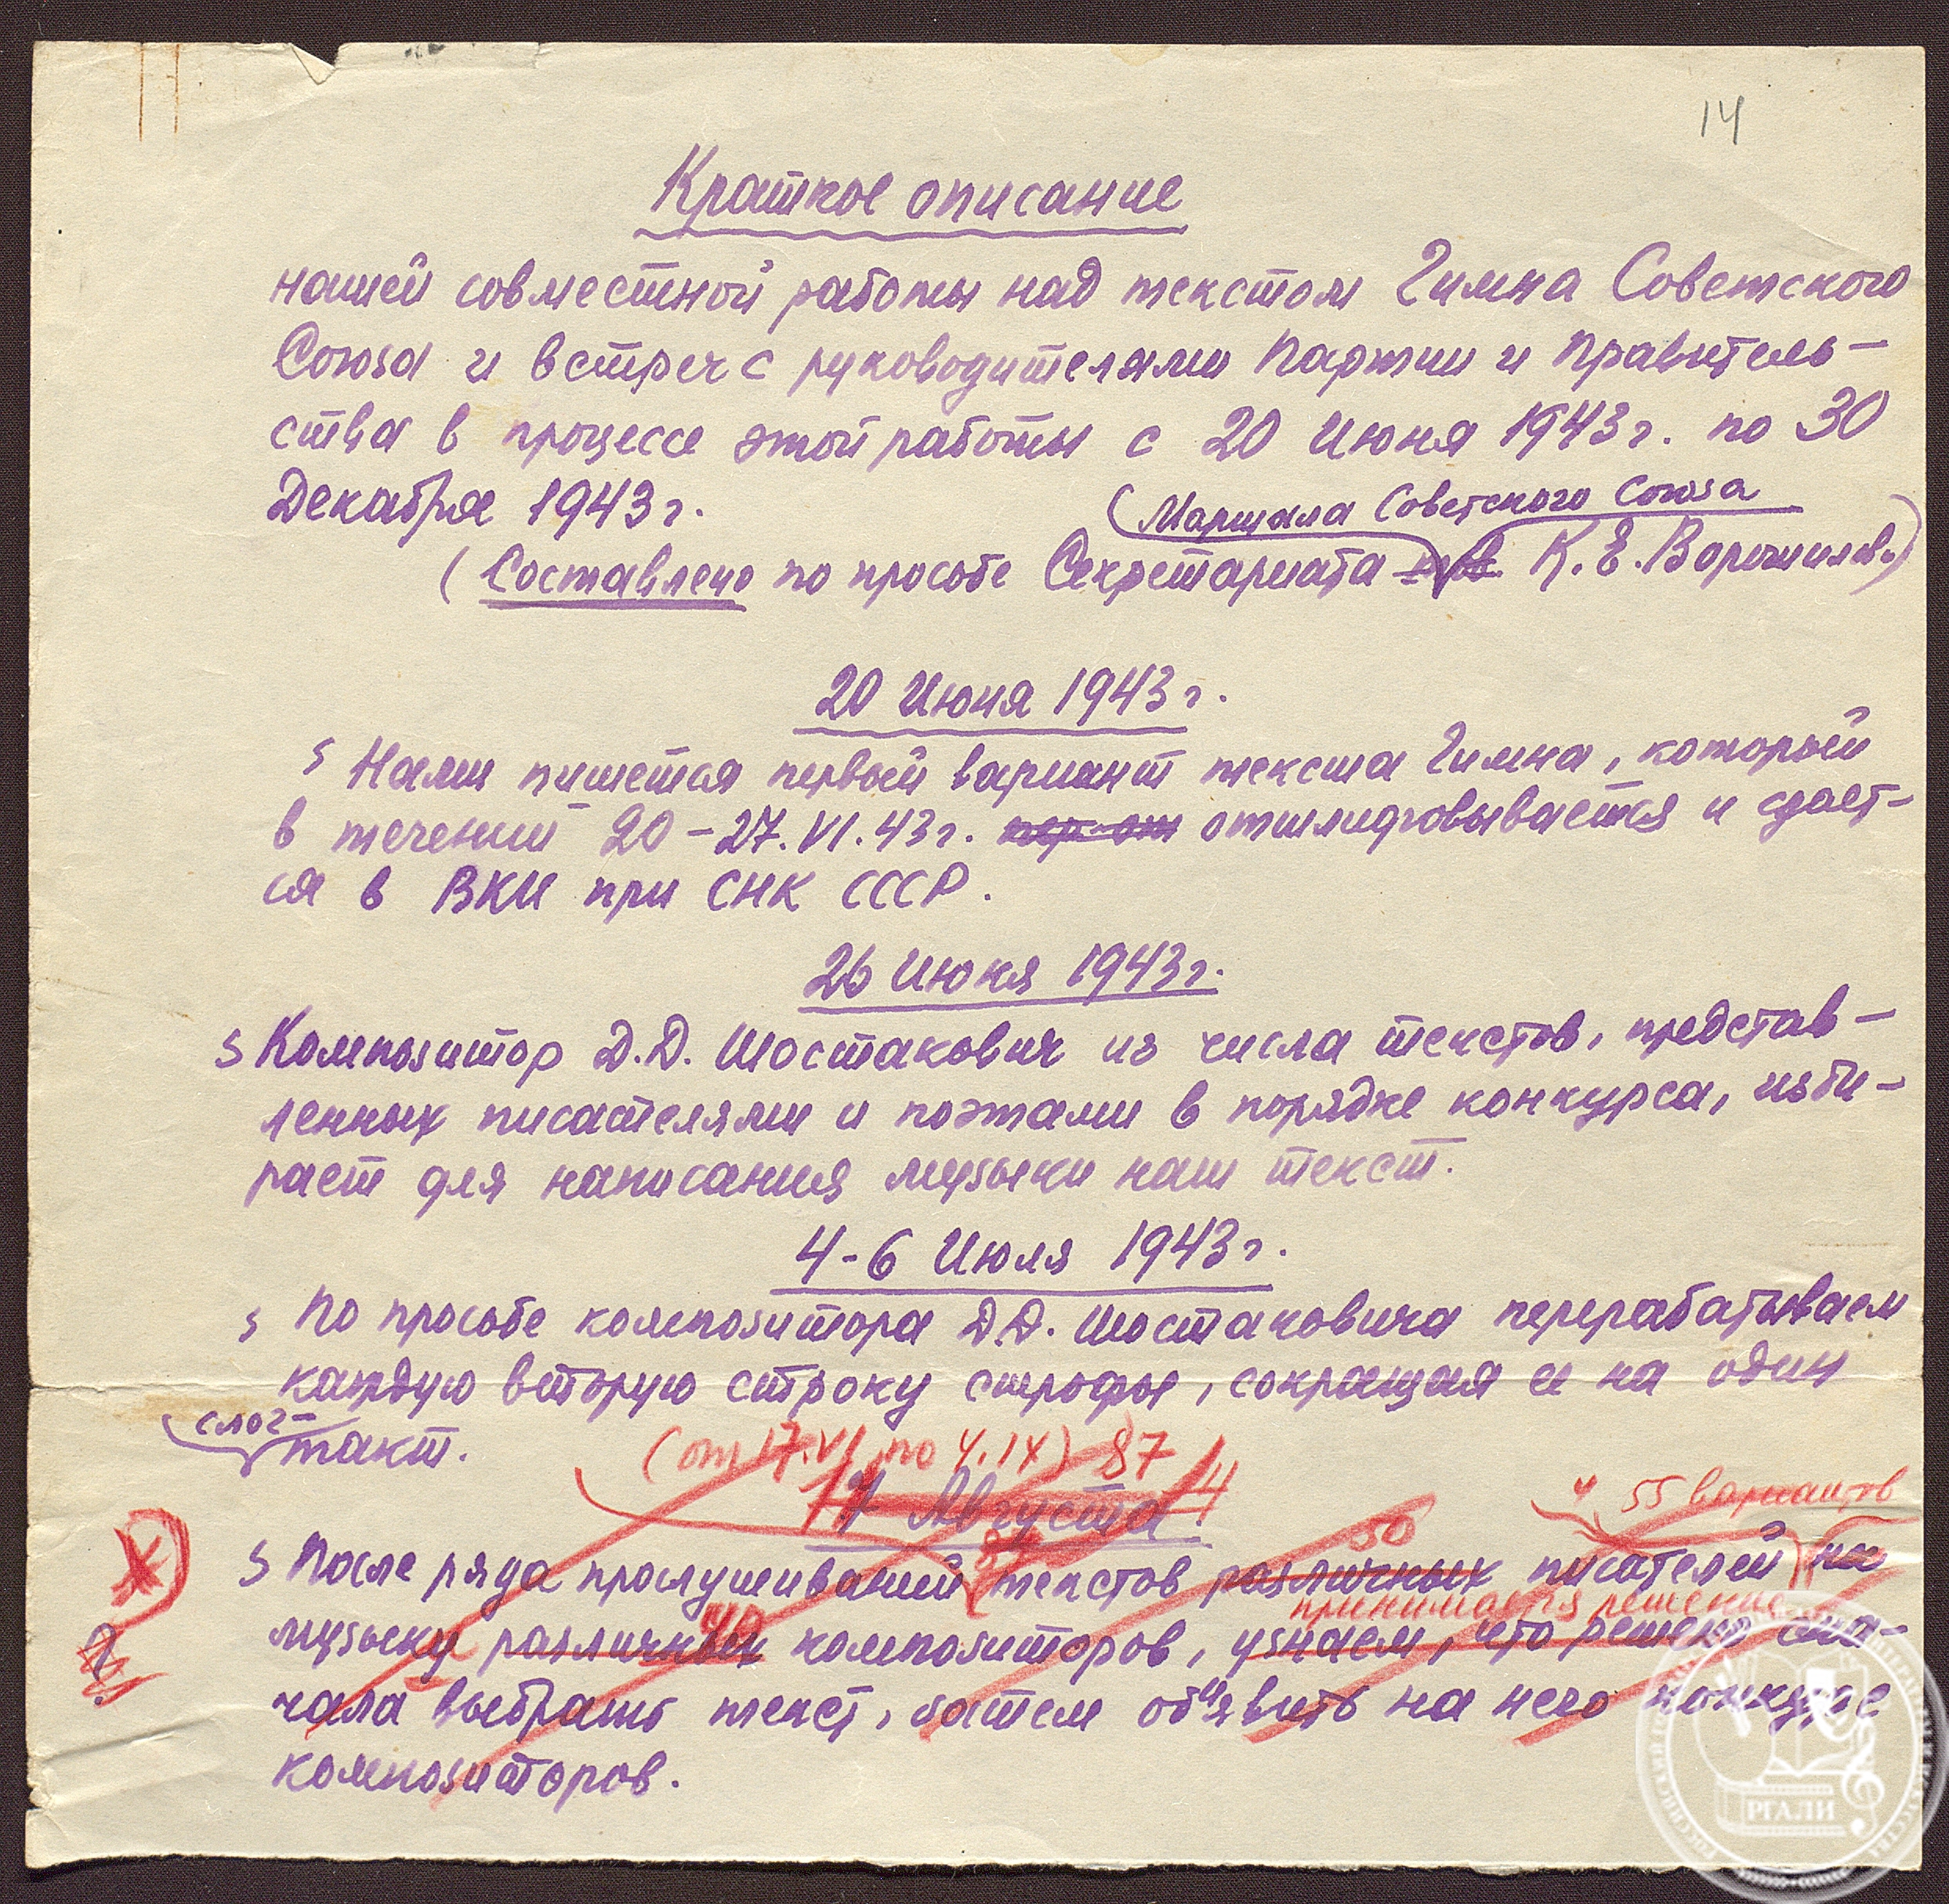 14
Краткое описание
нашей совместной работы над текстом Гимна Советского
Союза и встреч с руководителями Партии и Правитель-
ства в процессе этой работы с 20 Июня 1943 г. по 30
Декабря 1943 г.
(Маршала Советского Союза
(Составлено по просьбе Секретариата К. Е. Ворошилова)
20 Июня 1943 г.
Нами пишется первый вариант текста Гимна, который
в течении 20-27.VI.43 г. отшлифовывается и сдает-
ся в ВКИ при СНК СССР.
26 Июня 1943 г.
Композитор Д.Д. Шостакович из числа текстов, представ-
ленных писателями и поэтами в порядке конкурса, изби-
рает для написания музыки наш текст.
4-6 Июля 1943 г.
По просьбе композитора Д.Д. Шостаковича перерабатываем
каждую вторую строку строфы, сокращая ее на один
слог-
такт.
(от 17.VI по 4.IX) 87
Августа
55 вариантов
50
После ряда прослушиваний текстов различных писателей на
принимается решение
40
музыку различных композиторов, узнаем, что решено сна-
чала выбрать текст, затем об"явить на него конкурс
композиторов.
РГАЛИ